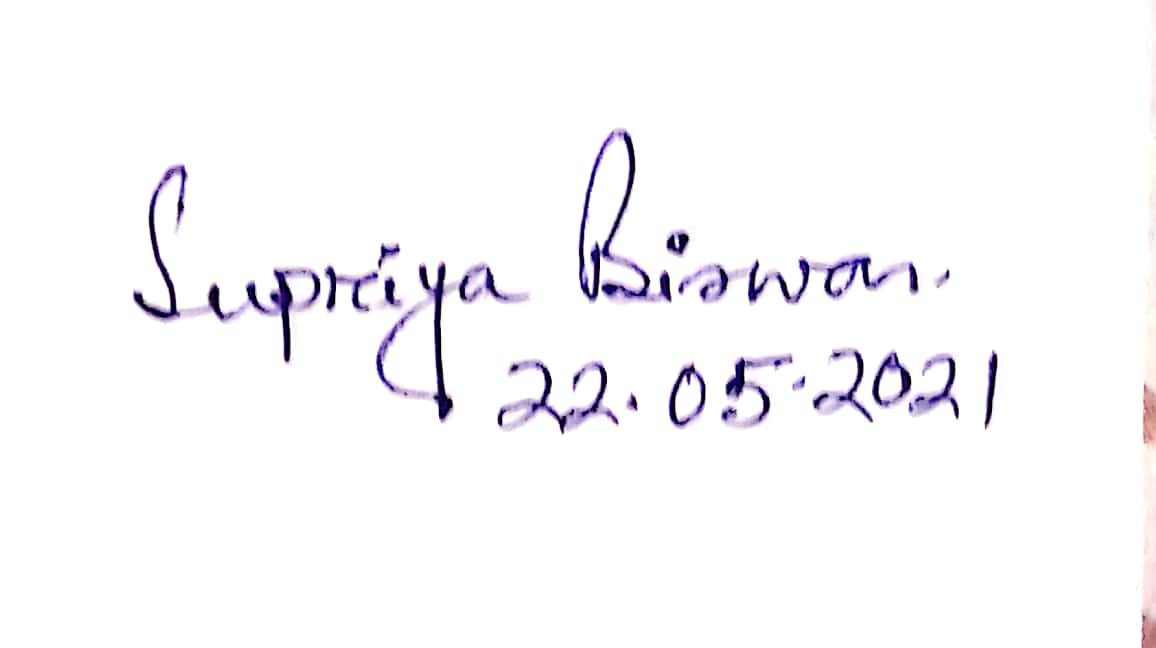 Supriya Biswas.
22.05.2021